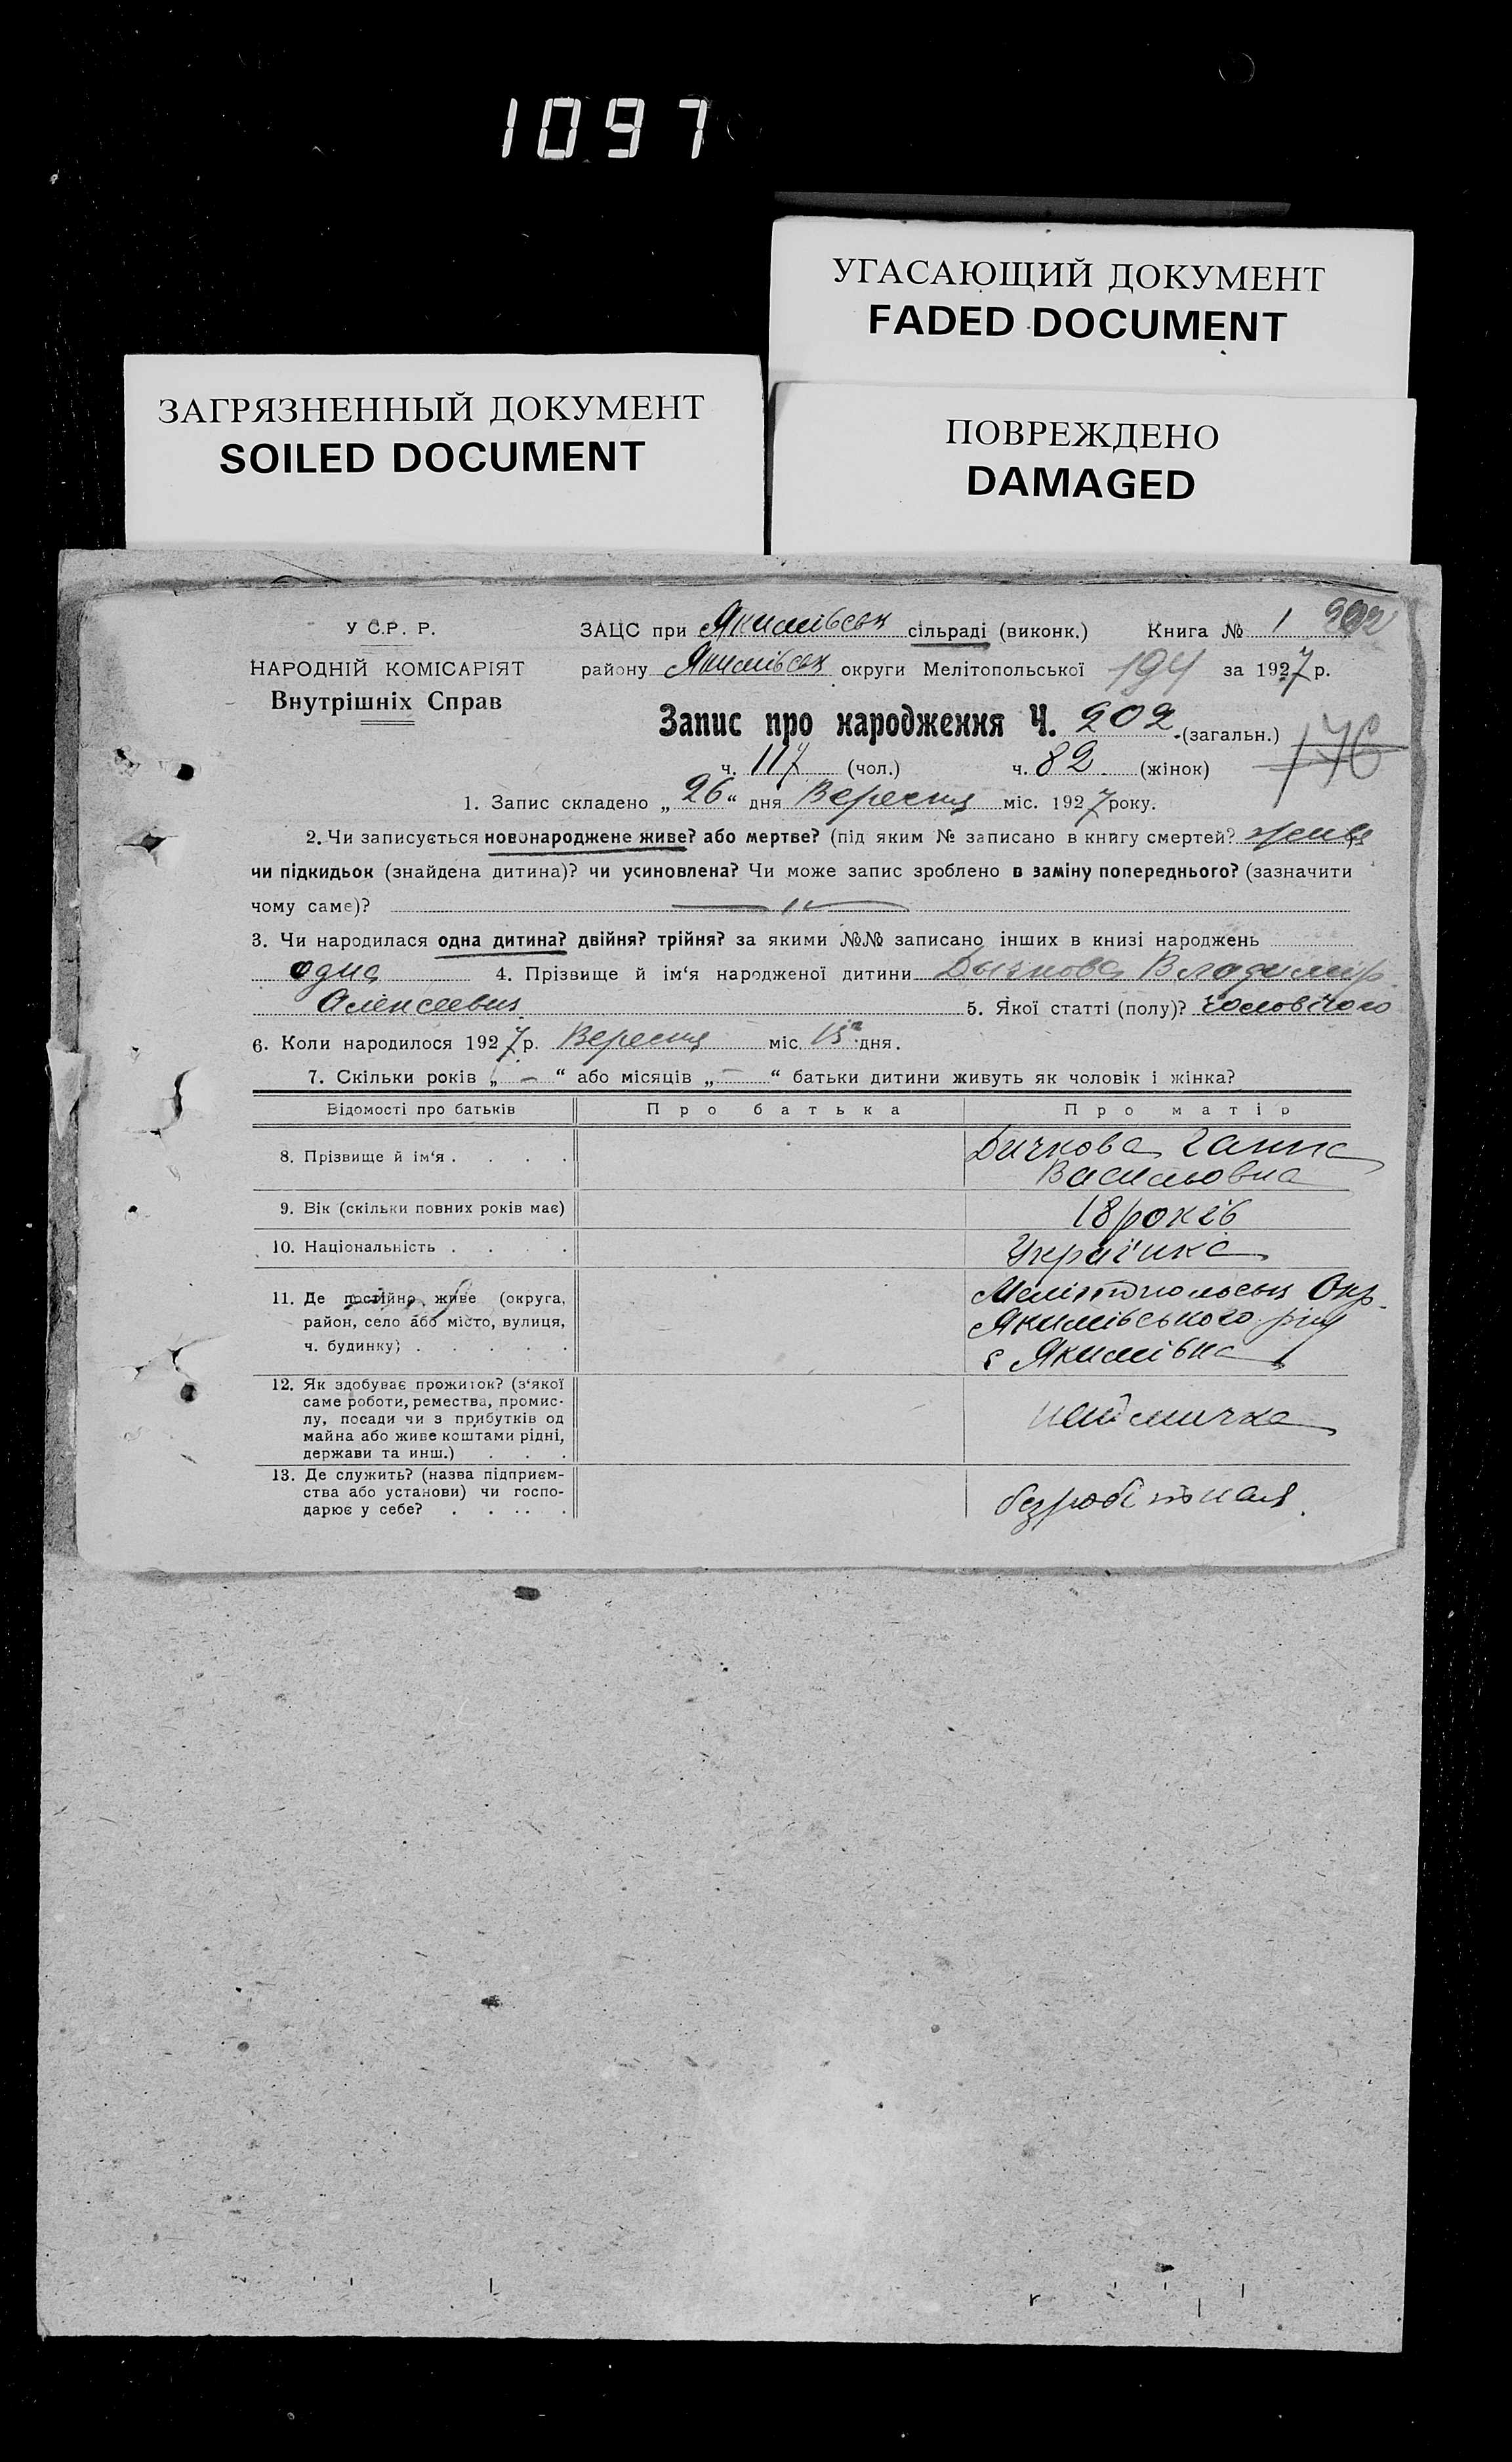 1097
УГАСАЮЩИЙ ДОКУМЕНТ
FADED DOCUMENT
ЗАГРЯЗНЕННЫЙ ДОКУМЕНТ
SOILED DOCUMENT
ПОВРЕЖДЕНО
DAMAGED
У С.Р. Р.
НАРОДНІЙ КОМІСАРІЯТ
Внутрішніх Справ
ЗАЦС при Якимівськ сільраді (виконк.) Книга № 1 202
району Якимівськ округи Мелітопольської 194 за 1927 р.
Запис про народження Ч. 202 (загальн.) 176
ч. 117 (чол.) ч. 82 (жінок)
1. Запис складено „ 26 “ дня Вересня міс. 1927 року.
2. Чи записується новонароджене живе? або мертве? (під яким № записано в книгу смертей?
чи підкидьок (знайдена дитина)? чи усиновлена? Чи може запис зроблено в заміну попереднього? (зазначити
чому саме)?
3. Чи народилася одна дитина? двійня? трійня? за якими №№ записано інших в книзі народжень
одна 4. Прізвище й ім‘я народженої дитини Бычкова Владимир
Алексеевич 5. Якої статті (полу)? чоловічого
6. Коли народилося 1927 р. Вересня міс. 15 дня.
7. Скільки років „ — “ або місяців „ — “ батьки дитини живуть як чоловік і жінка?
Відомості про батьків Про батька Про матір
8. Прізвище й ім‘я . . . . Бичкова Ганна
Васильовна
9. Вік (скільки повних років має) 18 років
10. Національність . . . . Україінка
11. Де постійно живе (округа, Мелітопольськ Окр.
район, село або місто, вулиця, Якимівського р-ну
ч. будинку) . . . . . с Якимівка
12. Як здобуває прожиток? (з‘якої
саме роботи, ремества, промис-
лу, посади чи з прибутків од наймичка
майна або живе коштами рідні,
держави та инш.) . . .
13. Де служить? (назва підприєм-
ства або установи) чи госпо-
дарює у себе? . . . . .